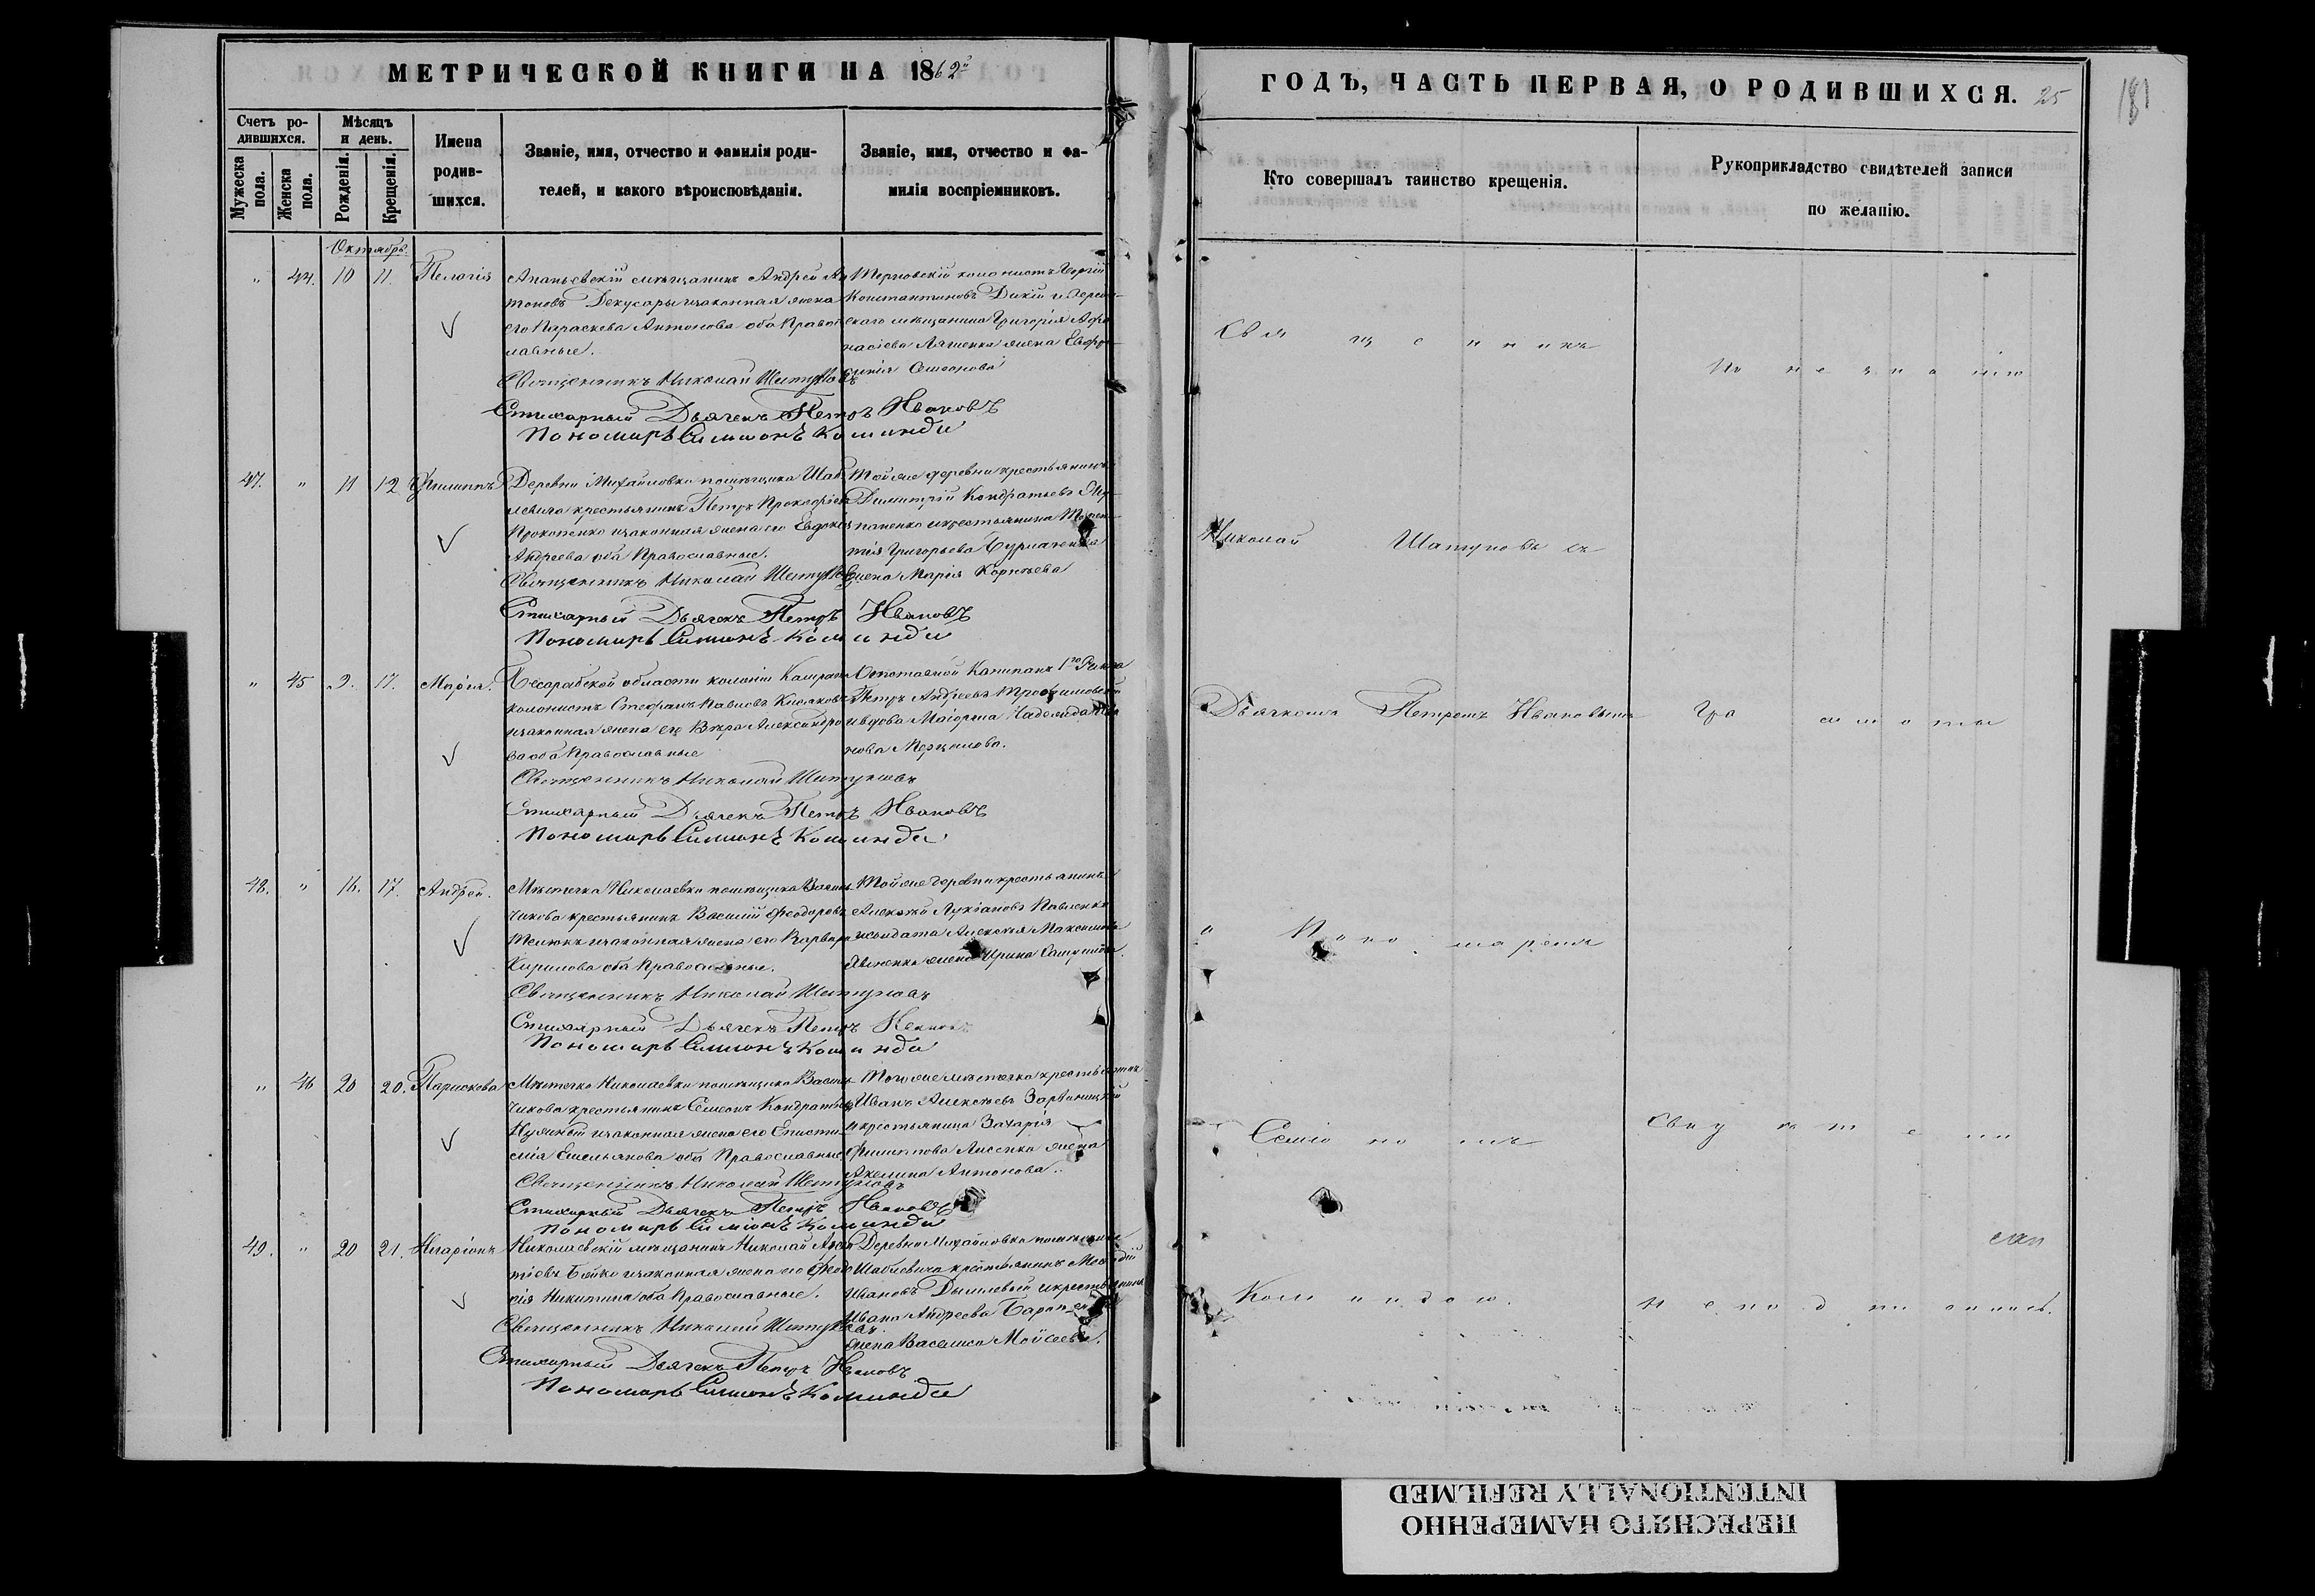 МЕТРИЧЕСКОЙ КНИГИ НА 1862й
ГОДЪ, ЧАСТЬ ПЕРВАЯ, О РОДИВШИХСЯ. 25
181
Счетъ родившихся.
Мужеска пола.
Женска пола.
Мѣсяцъ и день.
Рожденія.
Крещенія.
Имена
родив-
шихся.
Званіе, имя, отчество и фамилія роди-
телей, и какого вѣроисповѣданія.
Званіе, имя, отчество и фа-
милія воспріемниковъ.
Кто совершалъ таинство крещенія.
Рукоприкладство свидѣтелей записи
по желанію.
Октябрь.
" 44. 10 11. Пелагія
Ананьевскій мѣщанинъ Андрей Ан
тоновъ Декусары изаконная жена
его Параскева Антонова оба Правос
лавные.
Священникъ Николай Шатуновъ
Стихарный Дьячекъ Петръ Ивановъ
Пономарь Симионъ Команда
Терновскій колонистъ Георгій
Константиновъ Дикій и Херсон-
скаго мѣщанина Григорія Афа
насіева Ляшенка жена Евфро
синія Семенова
47. " 11 12 Филиппъ
Деревни Михайловки помѣщика Шаб
левича крестьянинъ Петръ Прокофіевъ
Прокопенко изаконная жена его Евдокія
Андреева оба Православные.
Священникъ Николай Шатуновъ
Стихарный Дьячекъ Петръ Ивановъ
Пономарь Симионъ Команда
Той же деревни крестьянинъ
Димитрій Кондратьевъ
икрестьянина
Григорьева Бурлаченка
жена Марія Корнѣева
" 45 9. 17. Марія.
Бесарабской области колоніи
колонистъ Стефанъ Павловъ
изаконная жена его Вѣра Александро
ва оба Православные
Священникъ Николай Шатуновъ
Стихарный Дьячекъ Петръ Ивановъ
Пономарь Симионъ Команда
Отставной Капитанъ 1го Ранга
Петръ Андреевъ Трофимовскій
ивдова Маіорша Надежда
нова
48. " 16. 17. Андрей.
Мѣстечка Николаевки помѣщика Васил
чикова крестьянинъ Василій Феодоровъ
изаконная жена его Варвара
Кирилова оба Православные.
Священникъ Николай Шатуновъ
Стихарный Дьячекъ Петръ Ивановъ
Пономарь Симионъ Команда
Той же деревни крестьянинъ
Алексѣй Лукіановъ Павленко
исолдата Алексѣя Максимова
Явненка жена Ирина
" 46 20 20. Параскева
Мѣстечка Николаевки помѣщика Васил
чикова крестьянинъ Семенъ Кондратьевъ
изаконная жена его Еписти
мія Емельянова оба Православные
Священникъ Николай Шатуновъ
Стихарный Дьячекъ Петръ Ивановъ
Пономарь Симионъ Команда
Того же мѣстечка крестьянинъ
Иванъ Алексѣевъ Зарваницкій
икрестьянина Захарія
Филиппова Лисенка жена
Акелина Антонова.
49. " 20 21. Иларіонъ
Николаевскій мѣщанинъ Николай
Бойко изаконная жена его Феодо
сія Никитина оба Православные.
Священникъ Николай Шатуновъ
Стихарный Дьячекъ Петръ Ивановъ
Пономарь Симионъ Команда
Деревни Михайловки помѣщика
Шаблевича крестьянинъ
Ивановъ Дышлевый икрестьянина
Ивана Андреева
жена Василиса Моисеева.
Священникъ
Николай Шатуновъ съ
Дьячкомъ Петромъ Ивановымъ
и Пономаремъ
Семіономъ
Командою.
По незнанію
грамоты
свидѣтели
сам
неподписались.
ПЕРЕСНЯТО НАМЕРЕННО
INTENTIONALLY REFILMED